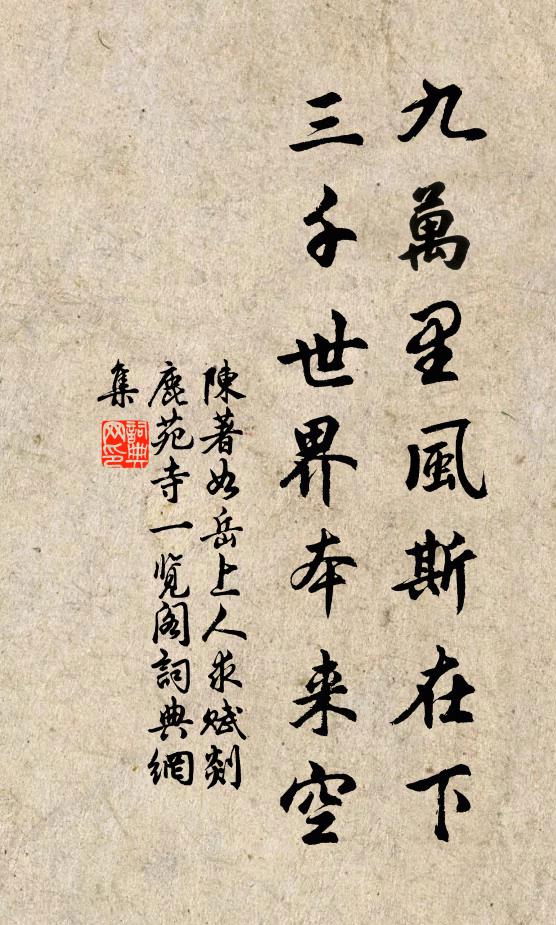 九萬里風斯在下
三千世界本来空
陳著如岳上人求賦剡
鹿苑寺一覽阁詞典網
集
詞典
网印